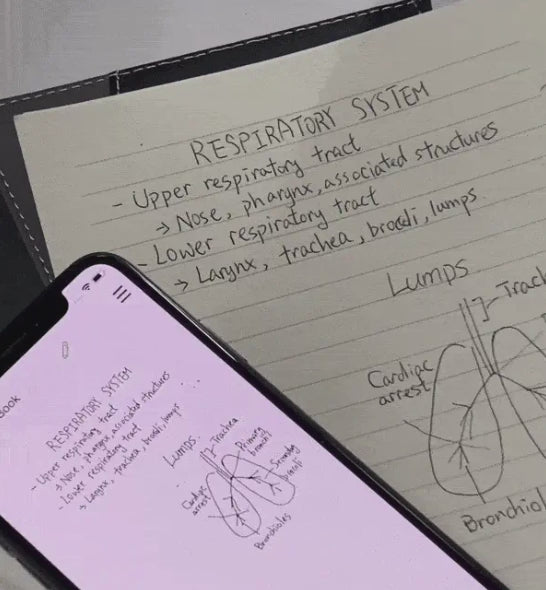 RESPIRATORY SYSTEM
- Upper respiratory tract
→ Nose, pharynx, associated structures
- Lower respiratory tract
→ Larynx, trachea, , lumps.
Lumps
Cardiac arrest
Book
RESPIRATORY SYSTEM
- Upper respiratory tract
→ Nose, pharynx, associated structures
- Lower respiratory tract
→ Larynx, trachea, , lumps
Lumps
Trachea
Primary
Cardiac
arrest
Bronchioles